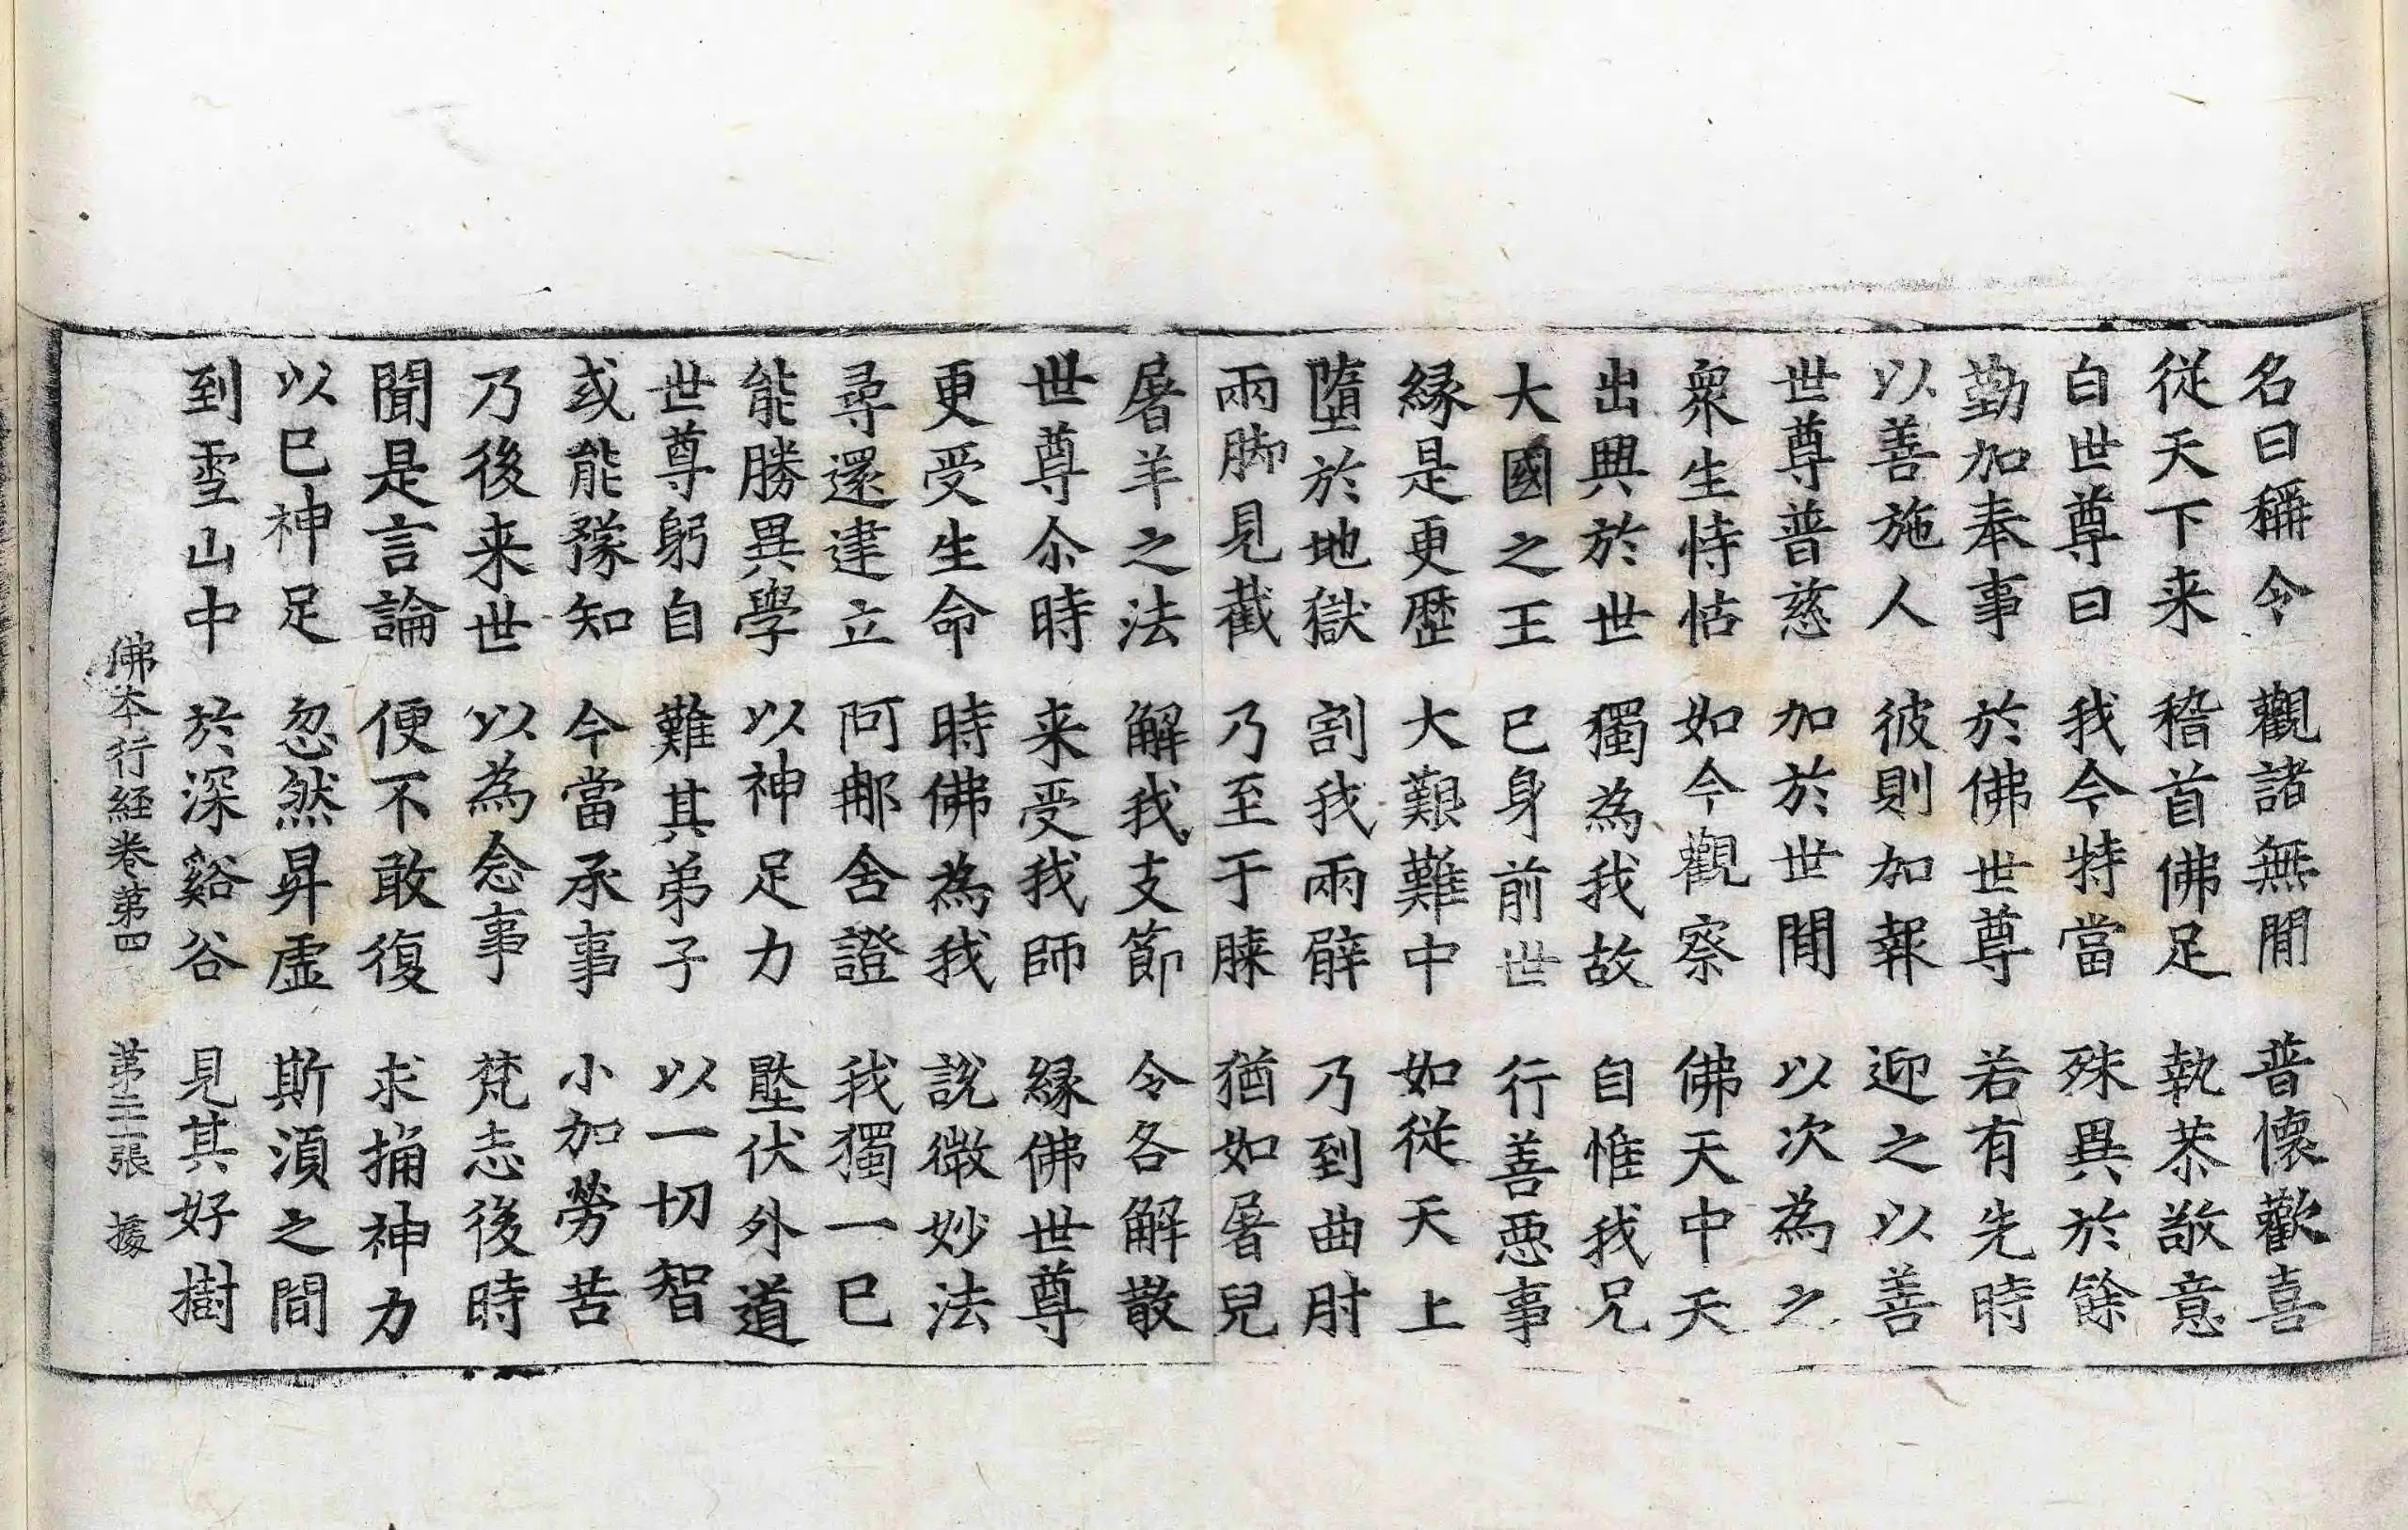 名曰稱令 觀諸無閒 普懷歡喜
從天下来 稽首佛足 執恭敬意
白世尊曰 我今特當 殊異於餘
勤加奉事 於佛世尊 若有先時
以善施人 彼則加報 迎之以善
世尊普慈 加於世閒 以次為之
衆生恃怙 如今觀察 佛天中天
出興於世 獨為我故 自惟我兄
大國之王 已身前世 行善惡事
緣是更歷 大艱難中 如從天上
墮於地獄 割我兩臂 乃到曲肘
兩脚見截 乃至于膝 猶如屠兒
屠羊之法 解我支節 令各解散
世尊尒時 来受我師 緣佛世尊
更受生命 時佛為我 說微妙法
尋還建立 阿那舍證 我獨一已
能勝異學 以神足力 壓伏外道
世尊躬自 難其弟子 以一切智
或能豫知 今當承事 小加勞苦
乃後来世 以為念事 梵志後時
聞是言論 便不敢復 求捔神力
以已神足 忽然昇虛 斯須之間
到雪山中 於深谿谷 見其好樹
佛本行経卷第四 第二張 據